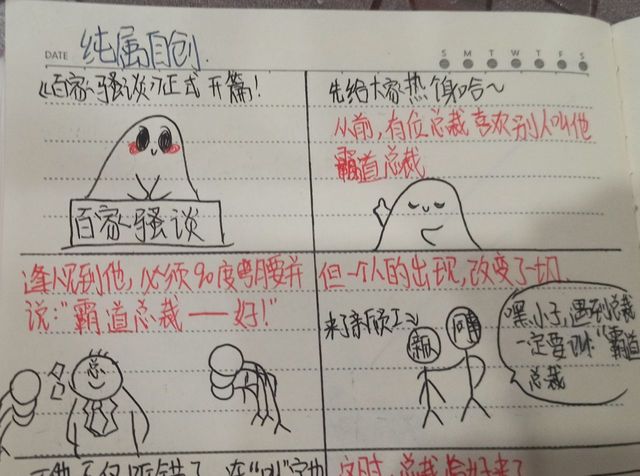 DATE
纯属自创
S M T W T F S
《百家~骚谈》正式开篇!
百家~骚谈
先给大家热个场哈~
从前,有位总裁喜欢别人叫他
霸道总裁
逢人见到他,必须90度弯腰并
说:"霸道总裁——好!"
总
但一个人的出现,改变了一切.
来了新员工~
新
嘿,小子,遇到总裁
一定要叫"霸道
总裁